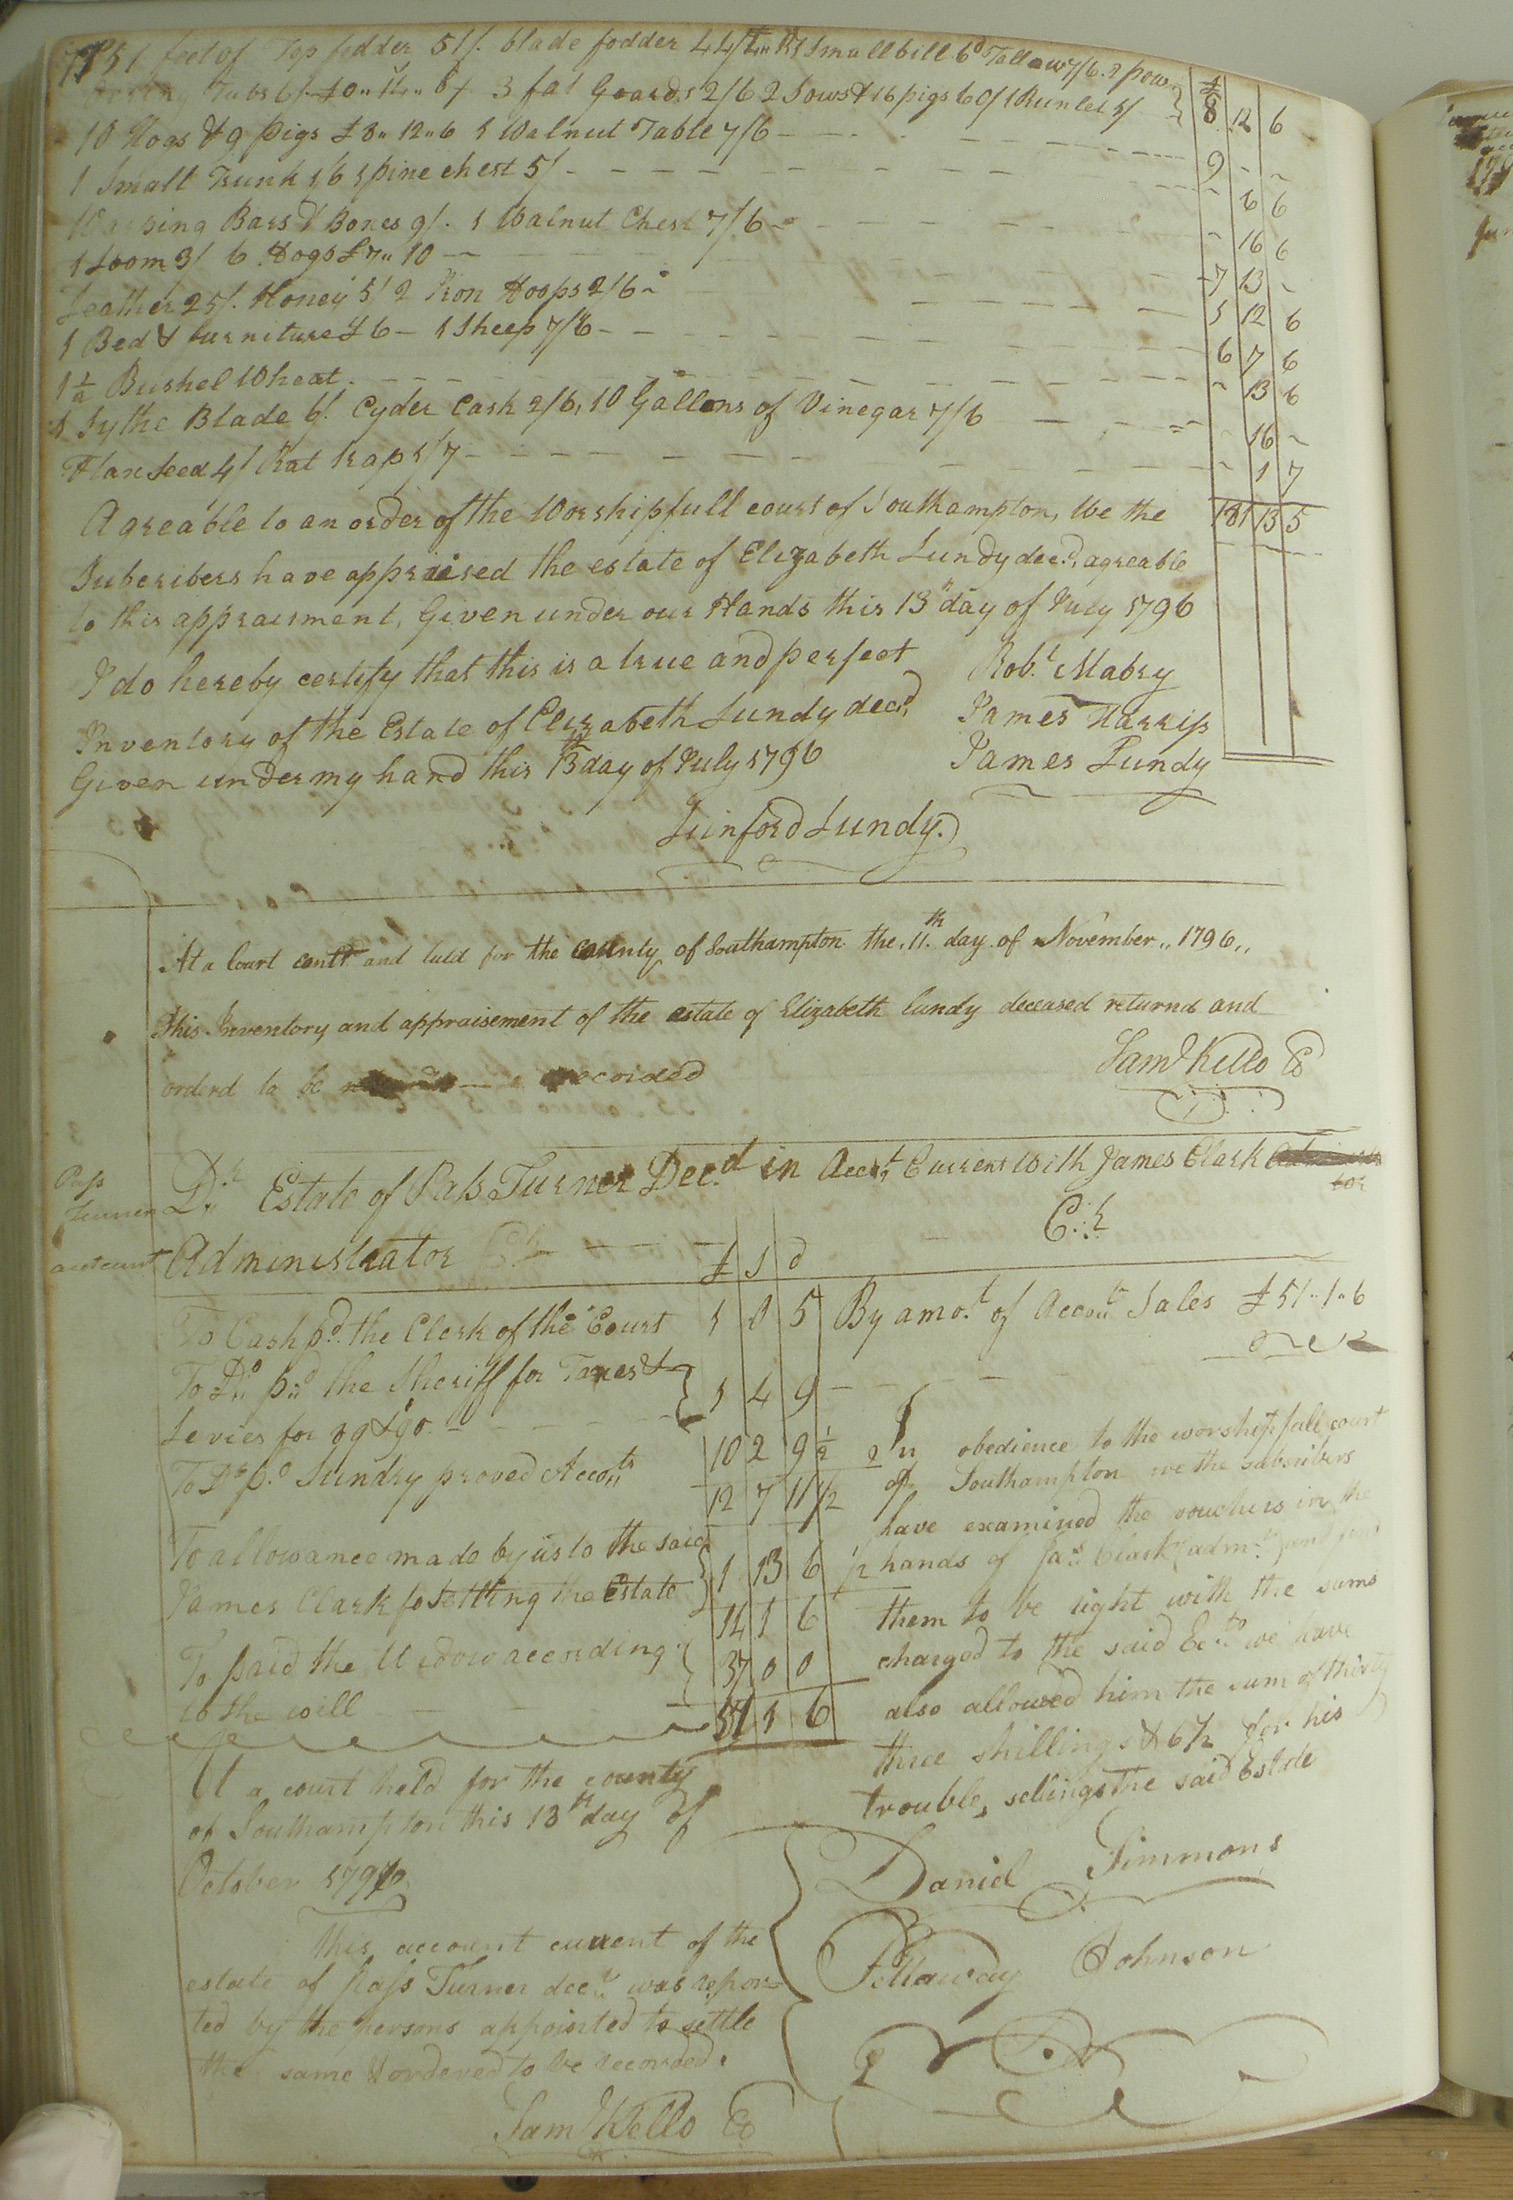 51 feet of Top fodder 51/. blade fodder 44/ Small bill 6d Tallow 7/6. 2 pow
Tubs 6/ £0,,14,,8/ 3 fat Goards 2/6 2 Sows & 16 pigs 60/ 1 Runlet 5/ £8 12 6
10 Hogs & 9 pigs £8,,12,,6 1 Walnut Table 7/6 9 - -
1 Small Trunk 1/6 1 pine chest 5/ - 6 6
Warping Bars & Boxes 9/. 1 Walnut Chest 7/6 - 16 6
1 Loom 3/ 6 Hogs £7,,10 7 13 -
Leather 25/. Honey 5/ 2 Iron Hoops 2/6 1 12 6
1 Bed & furniture £6 - 1 Sheep 7/6 6 7 6
1 1/2 Bushel Wheat - 13 6
1 Sythe Blade 6/. Cyder Cask 2/6, 10 Gallons of Vinegar 7/6 - 16 -
Flax seed 4d Rat trap 1/7 - 1 7
Agreable to an order of the Worshipfull court of Southampton, We the 181 13 5
Subcribers have appraised the estate of Elizabeth Lundy decd, agreable
to this appraisment, Given under our Hands this 13th day of July 1796
I do hereby certify that this is a true and perfect Robt Mabry
Inventory of the Estate of Elizabeth Lundy decd, James Harriss
Given under my hand this 13th day of July 1796 James Lundy
Lunford Lundy.
At a Court contd and held for the county of Southampton the 11th day of November,, 1796,,
This Inventory and appraisement of the estate of Elizabeth Lundy deceased returnd and
orderd to be recorded Saml Kello CC
Pass
Turner
account
Dr Estate of Pass Turner Decd in Acct Current With James Clark
Administrator £ S d Cr
To Cash pd. the Clerk of the Court 1 0 5 By amot of Accot Sales £51,,1,,6
To Do pd the Sheriff for Taxes &
Levies for 89 & 90 1 4 9
To Do pd Sundry proved Accots 10 2 9 1/2
12 7 11 1/2
To allowance made by us to the said
James Clark for Setting the Estate 1 13 6 1/2
14 1 6
To paid the Widow according
to the will 37 0 0
51 1 6
In obedience to the worshipfull court
of Southampton we the subsribers
have examined the vouchers in the
hands of Jas. Clark (admr.) and find
them to be right with the sums
charged to the said we have
also allowed him the sum of thirty
three shillings & 6 1/2 for his
trouble, setlings the said Estate
Daniel Simmons
Pettaway Johnson
At a court held for the county
of Southampton this 13th day of
October 1796
This account current of the
estate of Pass Turner decd. was repor=
ted by the persons appointed to settle
the same & ordered to be recorded.
Saml Kello CC